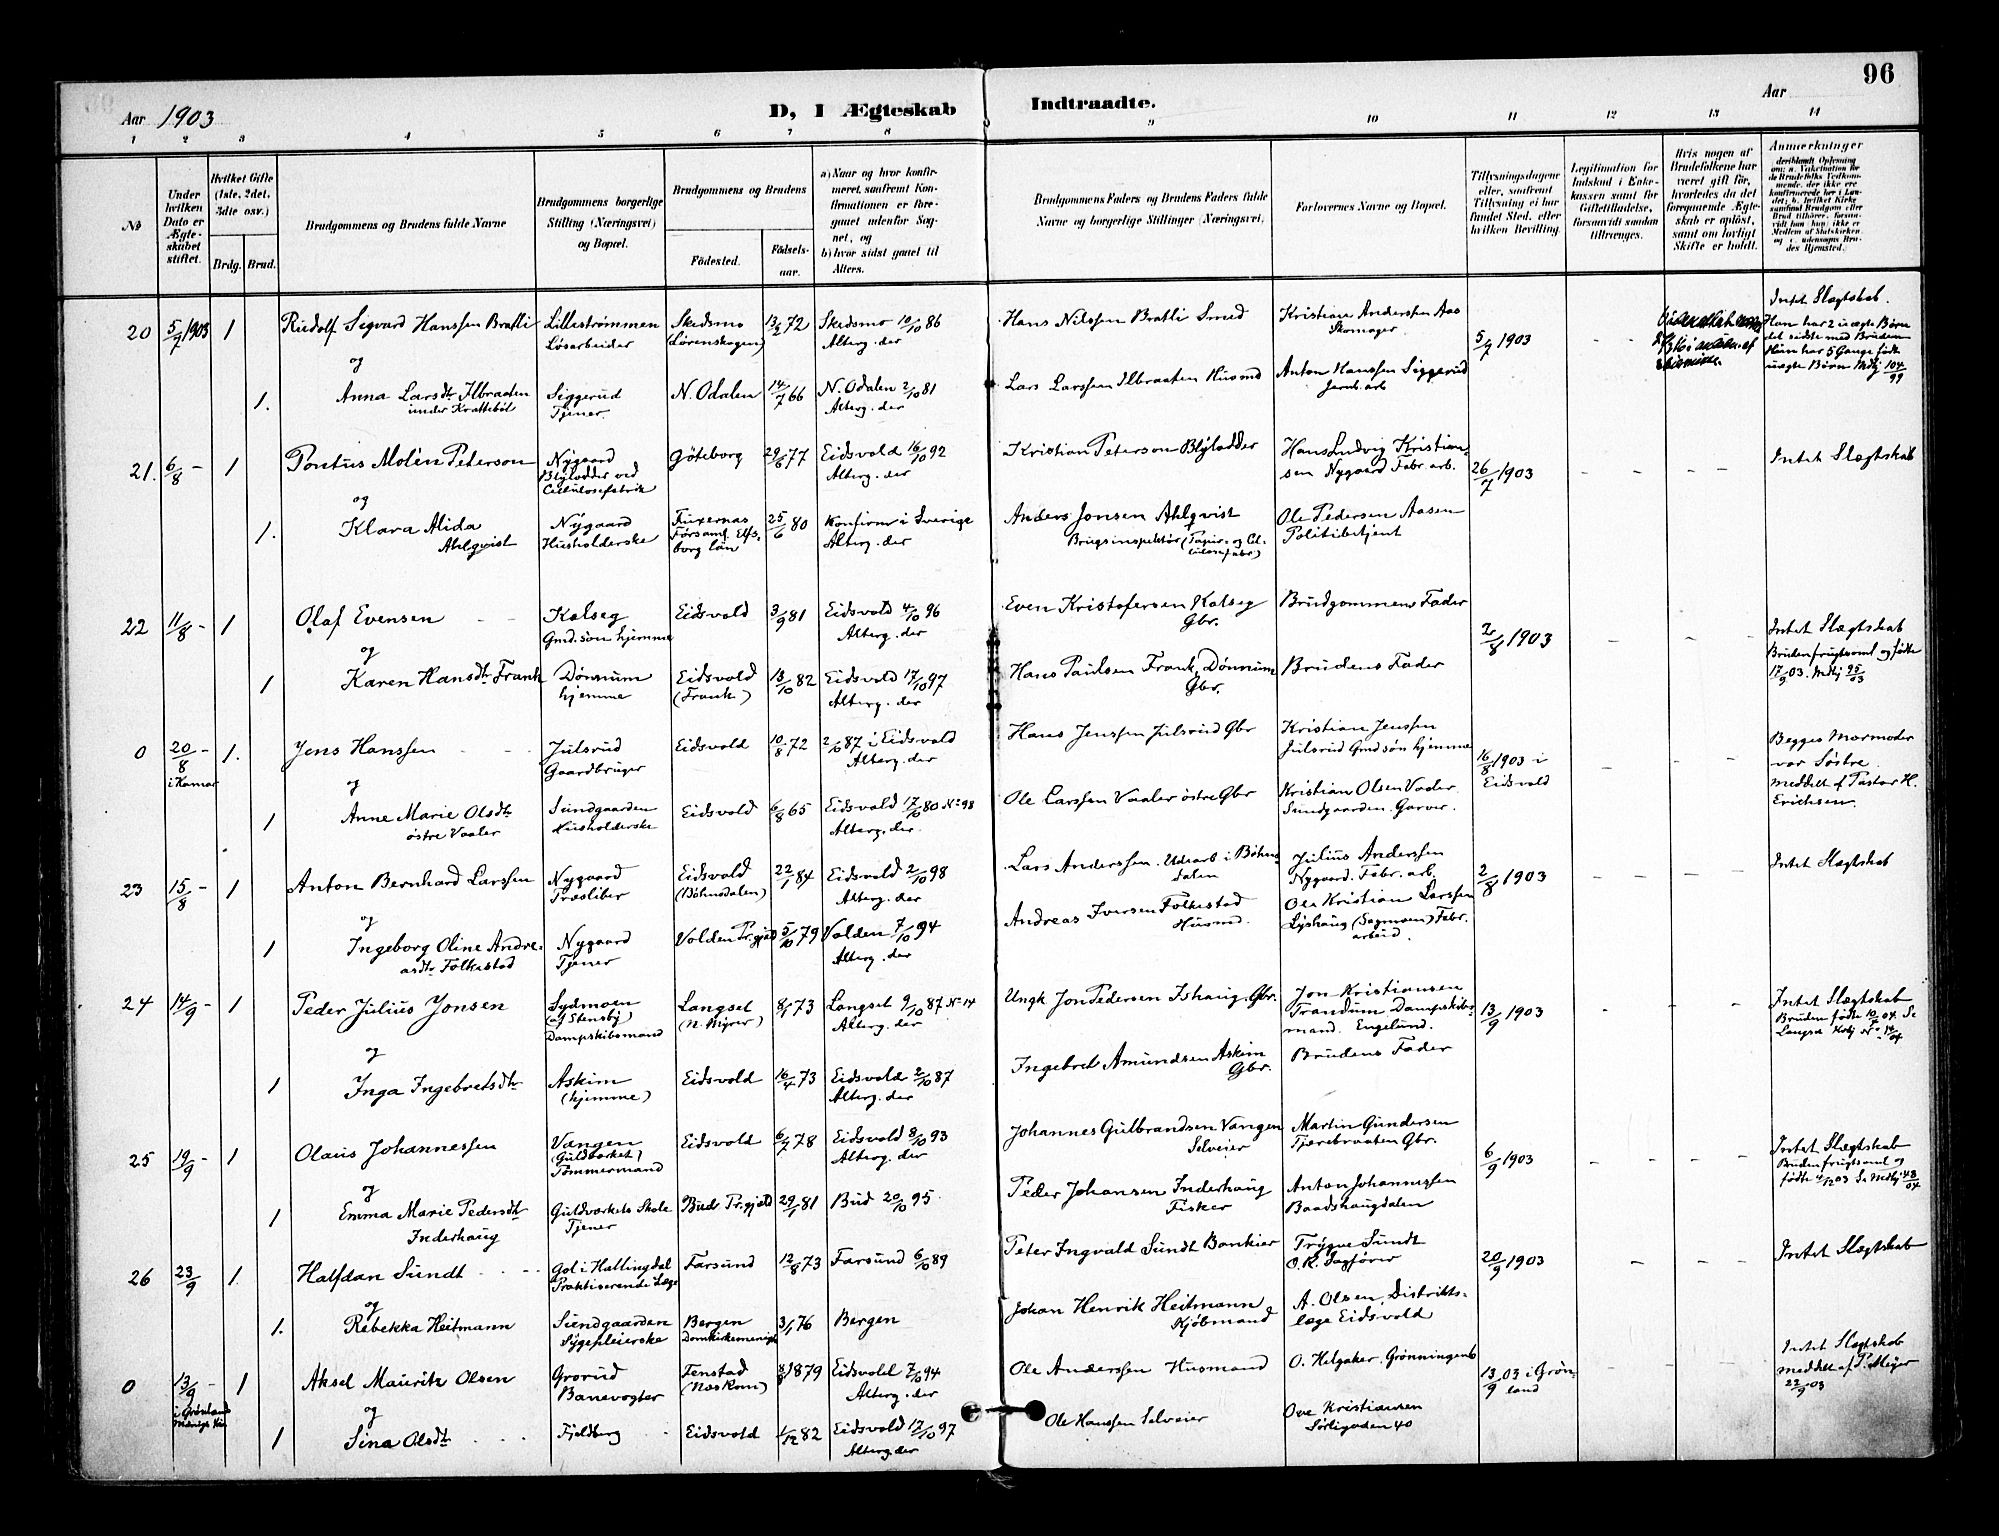 96
Aar 1903
D, I Ægteskab Indtraadte.
Aar
1 2 3 4 5 6 7 8 9 10 11 12 13 14
No
Under hvilken Dato er Ægteskabet stiftet.
Hvilket Gifte (1ste, 2det, 3dte osv.)
Brdg. Brud.
Brudgommens og Brudens fulde Navne
Brudgommens borgerlige Stilling (Næringsvei) og Bopæl.
Brudgommens og Brudens
Födested.
Födselsaar.
a) Naar og hvor konfirmeret, saafremt Konfirmationen er foregaaet udenfor Sognet, og
b) hvor sidst gaaet til Alters.
Brudgommens Faders og Brudens Faders fulde Navne og borgerlige Stillinger (Næringsvei)
Forlovernes Navne og Bopæl.
Tillysningsdagene eller, saafremt Tillysning ei har fundet Sted, efter hvilken Bevilling.
Legitimation for Indskud i Enkekassen samt for Giftetilladelse, forsaavidt saadan tiltrænges.
Hvis nogen af Brudefolkene har været gift för, hvorledes da det foregaaende Ægteskab er oplöst, samt om lovligt Skifte er holdt.
Anmærkninger
20 5/7 1903 1 Rudolf Sigvard Hanssen Bratli Lillestrømmen Løsarbeider Skedsmo (Lørenskogen) 13/2 72 Skedsmo 10/10 86 Alterg. der Hans Nilssen Bratli Smed Kristian Andersen Aas Skomager 5/7 1903 - - Intet Slægtskab. Han har 2 uægte Børn det sidste med Bruden Hun har 5 Gange født uægte Børn Mdtj 104/99
og
1. Anna Larsdtr Ilbraaden under Krattebøl Siggerud Tjener. N. Odalen 14/7 66 N. Odalen 2/10 81 Alterg. der Lars Larssen Ilbraaten Husmd Anton Hanssen Siggerud Jernb. arb
21. 6/8 - 1 Pontus Molén Peterson Nygaard Blylodder ved Cellulosefabrik Göteborg 29/6 77 Eidsvold 16/10 92 Alterg. der Kristian Peterson Blylodder Hans Ludvig Kristiansen Nygaard Fabr. arb. 26/7 1903 - - - Intet Slægtskab
og
1. Klara Alida Ahlqvist Nygaard Husholderske Fuxernas Församl. Elfsborg län 25/6 80 Konfirm i Sverige Alterg. der Anders Jonsen Ahlqvist Brugsinspektör (Papir- og Cellulosefabr) Ole Pedersen Aasen Politibetjent
22 11/8 - 1 Olaf Evensen Kalseg Gmd. søn hjemme Eidsvold 3/9 81 Eidsvold 4/10 96 Alterg. der Even Kristofersen Kalseg Gbr. Brudgommens Fader 2/8 1903 - - - Intet Slægtskab Bruden frugtsoml og fødte 17/9 03. Mdtj 95/03
og
1 Karen Hansdtr Frank Dønnum hjemme Eidsvold (Frank) 13/10 82 Eidsvold 17/10 97 Alterg. der Hans Paulsen Frank, Dønnum Gbr. Brudens Fader
0 20/8 - i Hamar 1. Jens Hanssen Julsrud Gaardbruger Eidsvold 10/8 72 2/10 87 i Eidsvold Alterg. der Hans Jenssen Julsrud Gbr Kristian Jenssen Julsrud Gmdsøn hjemme 16/8 1903 i Eidsvold - - - Begges Mormoder var Søstre. meddelt af Pastor H. Erichsen.
og
1 Anne Marie Olsdtr østre Vaaler Sundgaarden Husholderske Eidsvold 6/8 65 Eidsvold 17/10 80 No 98 Alterg. der. Ole Larssen Vaaler østre Gbr Kristian Olsen Vaaler. Sundgaarden. Garver.
23 15/8 - 1 Anton Bernhard Larssen Nygaard Træsliber Eidsvold (Bøhnsdalen) 22/1 84 Eidsvold 2/10 98 Alterg. der Lars Anderssen. Udearb i Bøhnsdalen Julius Anderssen Nygaard. Fabr. arb. 2/8 1903 - - - Intet Slægtskab
og
1 Ingeborg Oline Andreasdtr Folkestad Nygaard Tjener Volden Pr.gjæld 5/10 79 Volden 7/10 94 Alterg. der Andreas Iversen Folkestad Husmd. Ole Kristian Larssen Lyshaug (Sagmoen) Fabr. arbeid.
24 14/9 - 1 Peder Julius Jonsen Sydmoen (af Stensby) Dampskibsmand Langset (N. Myrer) 8/1 73 Langset 9/10 87 No 14 Alterg. der Ungk Jon Pedersen Ishaug. Gbr. Jon Kristiansen Trandum Dampskibsmand. Engelund. 13/9 1903 - - - Intet Slægtskab Bruden fødte 10/4 04. Se Langset Kbtj No 14/04
og
1 Inga Ingebretsdtr Askim (hjemme) Eidsvold 16/4 73 Eidsvold 2/10 87 Alterg. der Ingebret Amundsen Askim Gbr. Brudens Fader
25 19/9 - 1 Olaus Johannessen Vængen (Guldværket) Tømmermand Eidsvold 6/7 78 Eidsvold 8/10 93 Alterg. der Johannes Gulbrandsen Vængen Selveier Martin Gundersen Tjærebraaten Gbr. 6/9 1903 - - - Intet Slægtskab Bruden frugtsoml og fødte 4/12 03 Se Mdtj 48/04
og
1 Emma Marie Pedersdtr Inderhaug Guldværkets Skole Tjener Bud Pr.gjæld 29/1 81 Bud 20/10 95. Peder Johansen Inderhaug Fisker Anton Johannessen Baadshaugdalen
26 23/9 1. Halfdan Sundt Gol i Hallingdal Praktiserende Læge Farsund 12/8 73 Farsund 6/10 89 Peter Ingvald Sundt Bankier Trygve Sundt O.R. Sagfører 20/9 1903 - - - Intet Slægtskab
og
1. Rebekka Heitmann Sundgaarden Sygepleierske Bergen Domkirkemenigh 3/1 76 Bergen Johan Henrik Heitmann Kjøbmand A. Olsen Distriktslæge Eidsvold
0 13/9 - i Grønland 1 Aksel Mauritz Olsen Grorud Banevogter Fenstad (Nes Rom) 8/8 1879 Eidsvold 7/10 94 Alterg. der Ole Anderssen Husmand O. Helgaker. Grønningen 6 13/9 03 i Grønland - - - Intet Slægtskab meddelt af P. Meyer 22/9 03
og
1 Sina Olsdtr Fjeldberg Eidsvold 1/12 82 Eidsvold 12/10 97 Alterg. der Ole Hanssen Selveier Ove Kristiansen Sørligaden 40